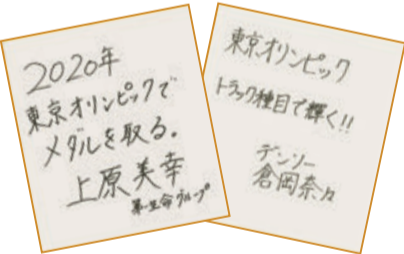 2020年
東京オリンピックで
メダルを取る。
上原美幸
第一生命グループ
東京オリンピック
トラック種目で輝く!!
デンソー
倉岡奈々